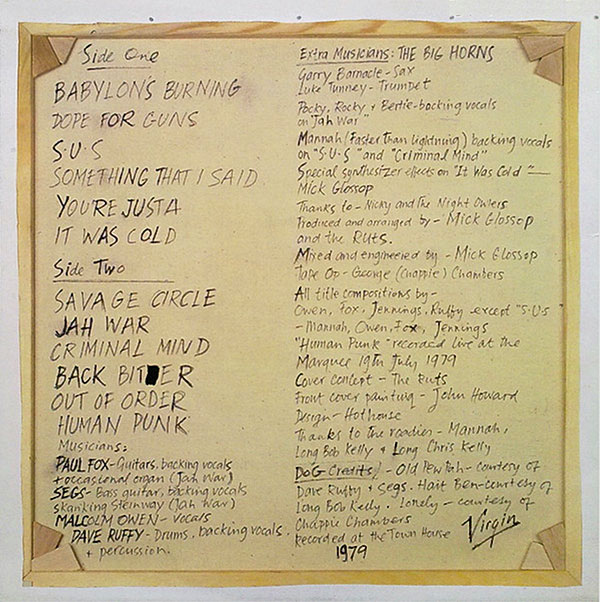 Side One
BABYLON'S BURNING
DOPE FOR GUNS
S·U·S
SOMETHING THAT I SAID
YOU'RE JUST A
IT WAS COLD
Side Two
SAVAGE CIRCLE
JAH WAR
CRIMINAL MIND
BACK BITER
OUT OF ORDER
HUMAN PUNK
Musicians:
PAUL FOX - Guitars, backing vocals
+ occasional organ (Jah War)
SEGS - Bass guitar, backing vocals
skanking Steinway (Jah War)
MALCOLM OWEN - Vocals
DAVE RUFFY - Drums, backing vocals,
+ percussion.
Extra Musicians: THE BIG HORNS
Garry Barnacle - Sax
Luke Tunney - Trumpet
Pocky, Rocky + Bertie - backing vocals
on "Jah War"
Mannah (Faster than lightning) backing vocals
on "S·U·S" and "Criminal Mind"
Special synthesizer effects on "It Was Cold" -
Mick Glossop
Thanks to - Nicky and the Night Owers
Produced and arranged by - Mick Glossop
and the Ruts.
Mixed and engineered by - Mick Glossop
Tape Op - George (Chappie) Chambers
All title compositions by -
Owen, Fox, Jennings, Ruffy except "S·U·S
- Mannah, Owen, Fox, Jennings
"Human Punk" recorded live at the
Marquee 19th July 1979
Cover concept - The Ruts
Front cover painting - John Howard
Design - Hothouse
Thanks to the roadies - Mannah,
Long Bob Kelly & Long Chris Kelly
DoG Credits) - Old - courtesy of
Dave Ruffy & Segs. Hait Ben - courtesy of
Long Bob Kelly. Lonely - courtesy of
Chappie Chambers
Recorded at the Town House
Virgin
1979